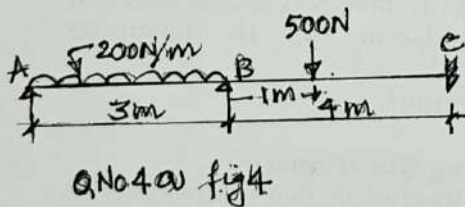 500N
200N/m
A
B
C
1m
3m
4m
QNo4a fig4